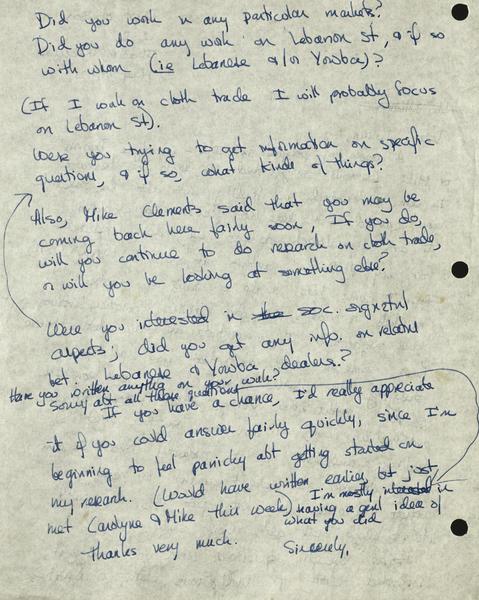 Did you work in any particular markets?
Did you do any work on Lebanon St, & if so
with whom (ie Lebanese &/or Yoruba)?
(If I work on cloth trade I will probably focus
on Lebanon St).
Were you trying to get information on specific
questions, & if so, what kinds of things?
Also, Mike Clements said that you may be
coming back here fairly soon, If you do,
will you continue to do research on cloth trade,
or will you be looking at something else?
Were you interested in the soc. signctnl
aspects; did you get any info. on relatns
bet. Lebanese & Yoruba dealers?
Have you written anything on your work?
Sorry abt all these questions
If you have a chance, I'd really appreciate
it if you could answer fairly quickly, since I'm
beginning to feel panicky abt getting started on
my research. (Would have written earlier but just
met Carolyne & Mike this week)
I'm mostly interested in
having a genl idea of
what you did
Thanks very much. Sincerely,